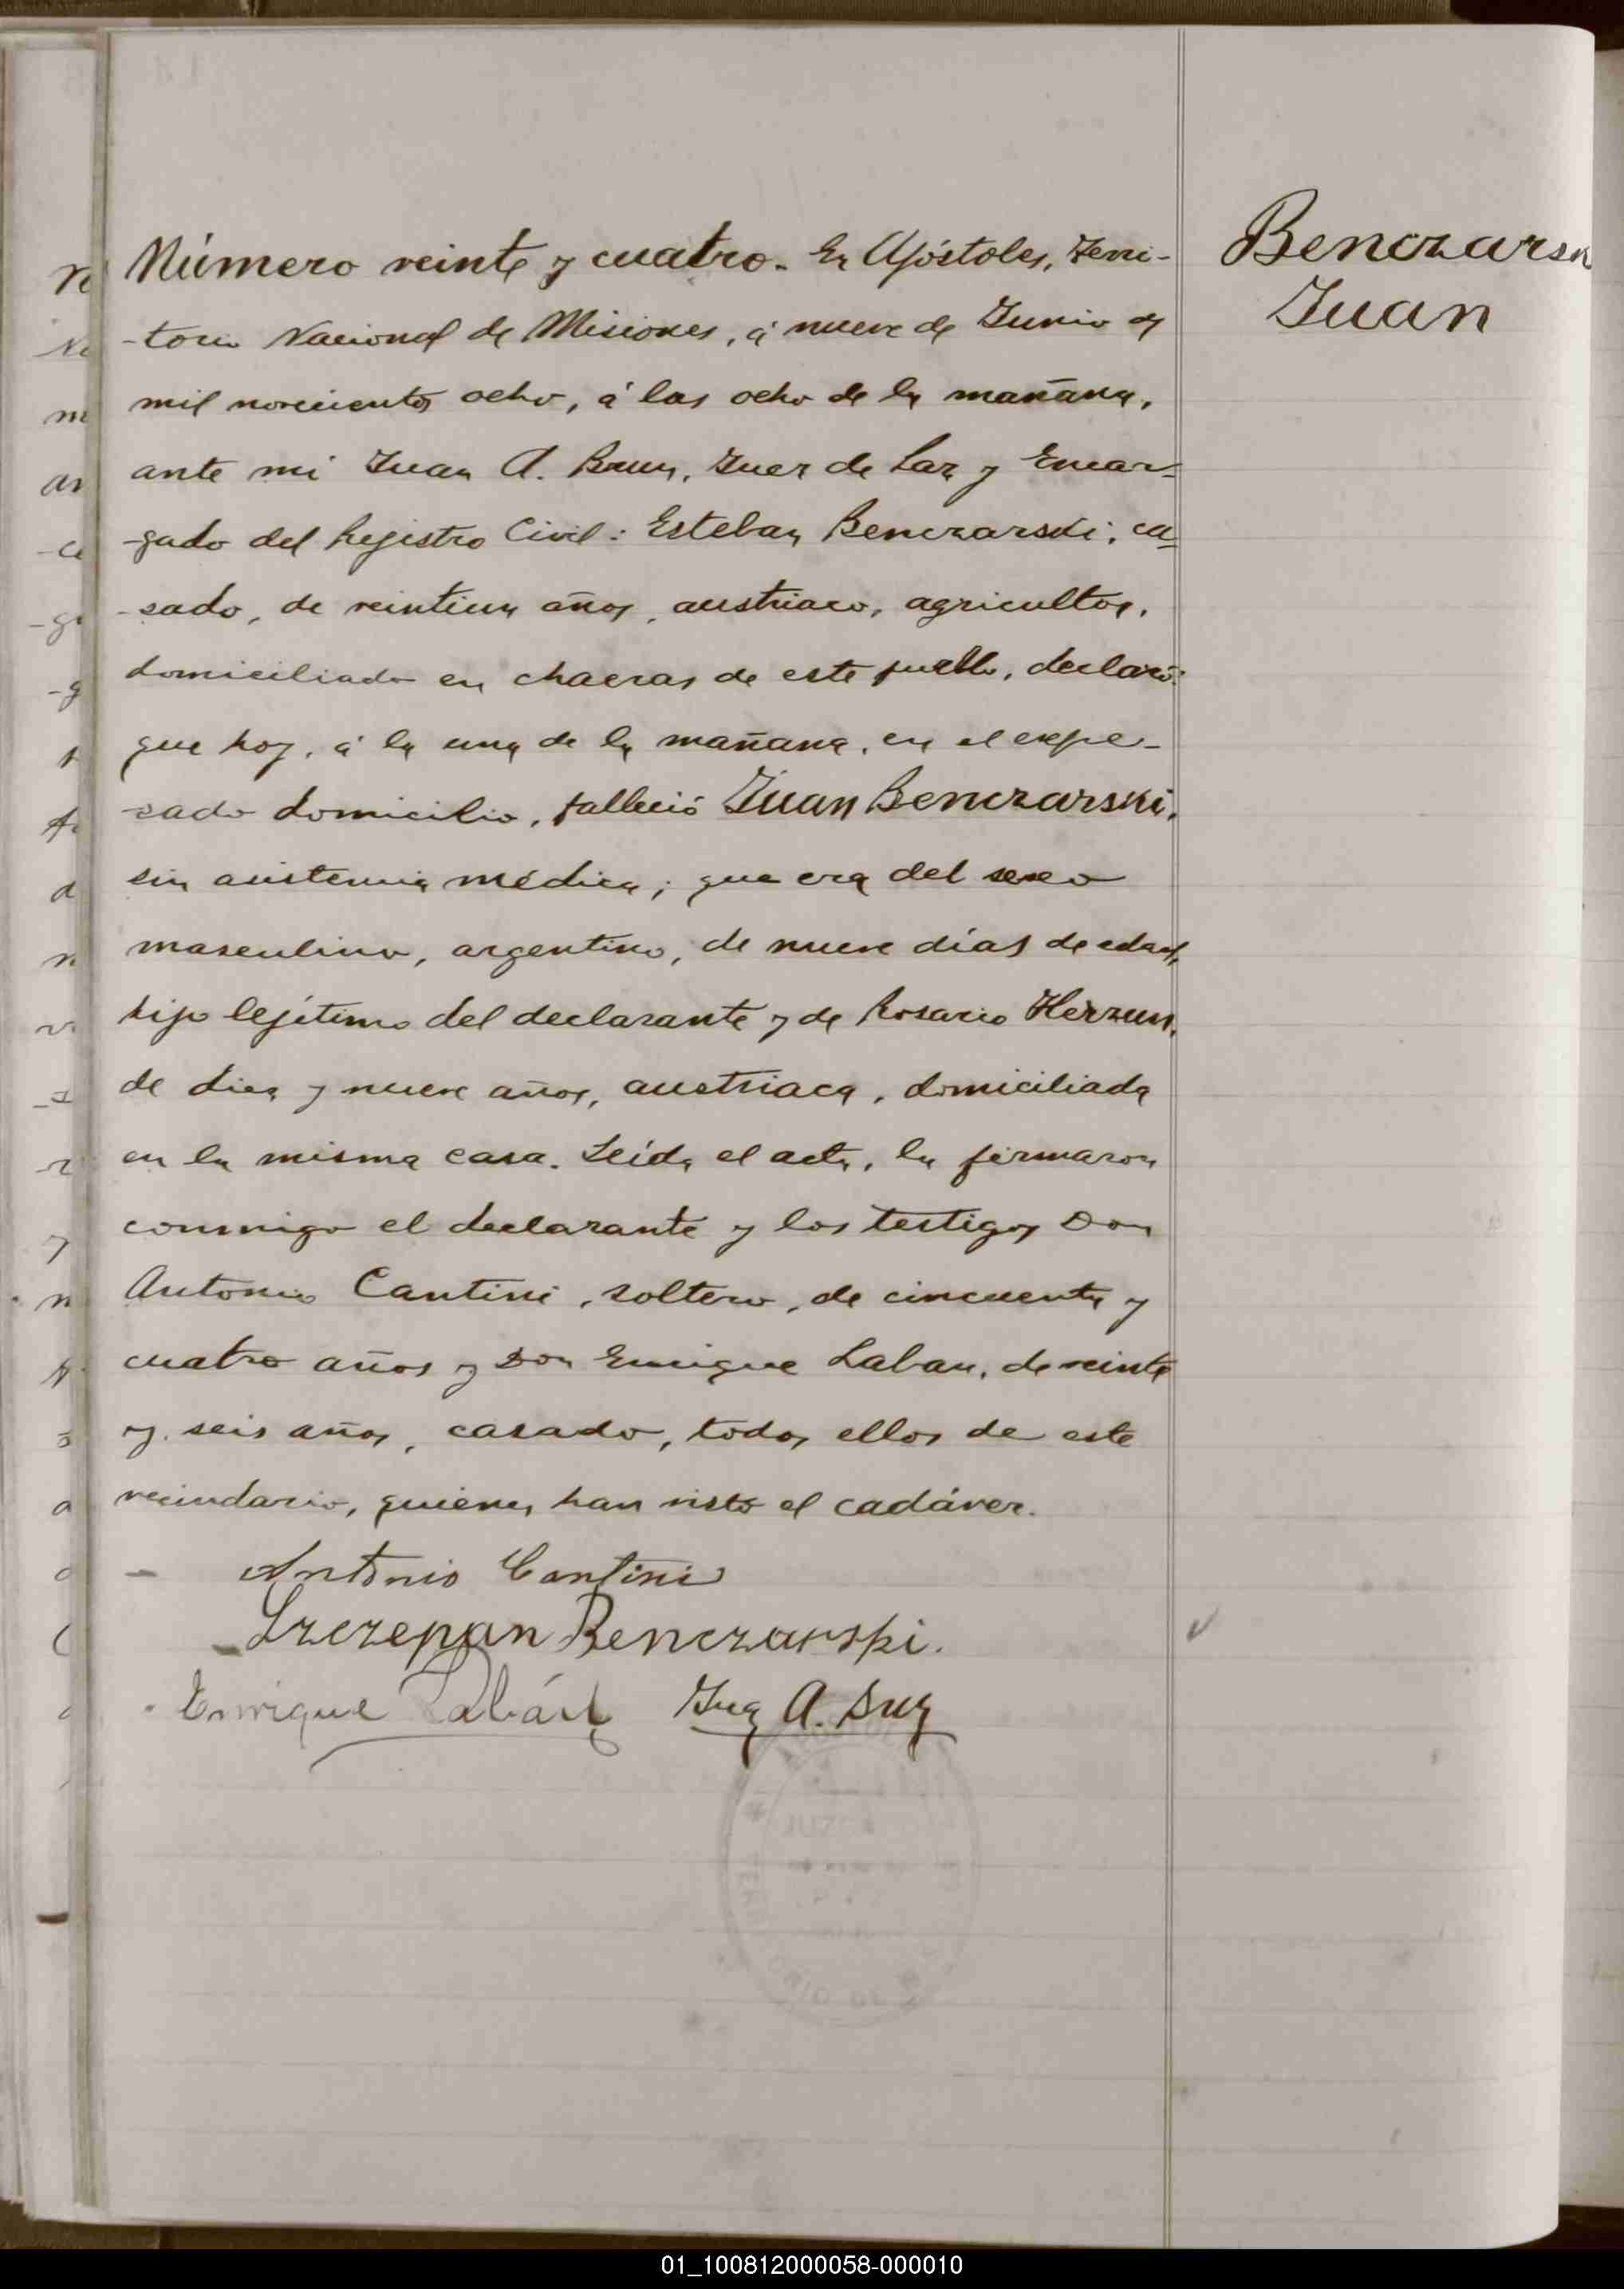 Benczarsk
Juan
Número veinte y cuatro. En Apóstoles, Terri-
-torio Nacional de Misiones, á nueve de Junio de
mil novecientos ocho, á las ocho de la mañana,
ante mi Juan A. Brun, Juez de Paz y Encar-
-gado del Registro Civil: Esteban Benczarski, ca-
-sado, de veintiun años, austriaco, agricultor,
domiciliado en chacras de este pueblo, declaró:
que hoy, á la una de la mañana, en el expre-
-sado domicilio, falleció Juan Benczarski,
sin asistencia médica; que era del sexo
masculino, argentino, de nueve días de edad,
hijo lejítimo del declarante y de Rosario Herzun,
de diez y nueve años, austriaca, domiciliada
en la misma casa. Leída el acta, la firmaron
conmigo el declarante y los testigos Don
Antonio Cantini, soltero, de cincuenta y
cuatro años y Don Enrique Laban, de veinte
y seis años, casado, todos ellos de este
vecindario, quienes han visto el cadáver.
Antonio Cantini
Szczepan Benczarski.
Enrique Labán Juan A. Brun
JUZGA
01_100812000058-000010